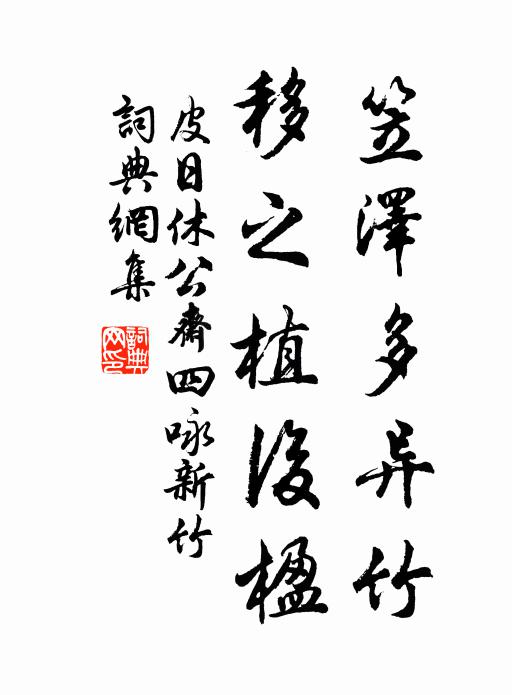 笠澤多异竹
移之植後楹
皮日休公齋四咏新竹
詞典網集
詞典
网印